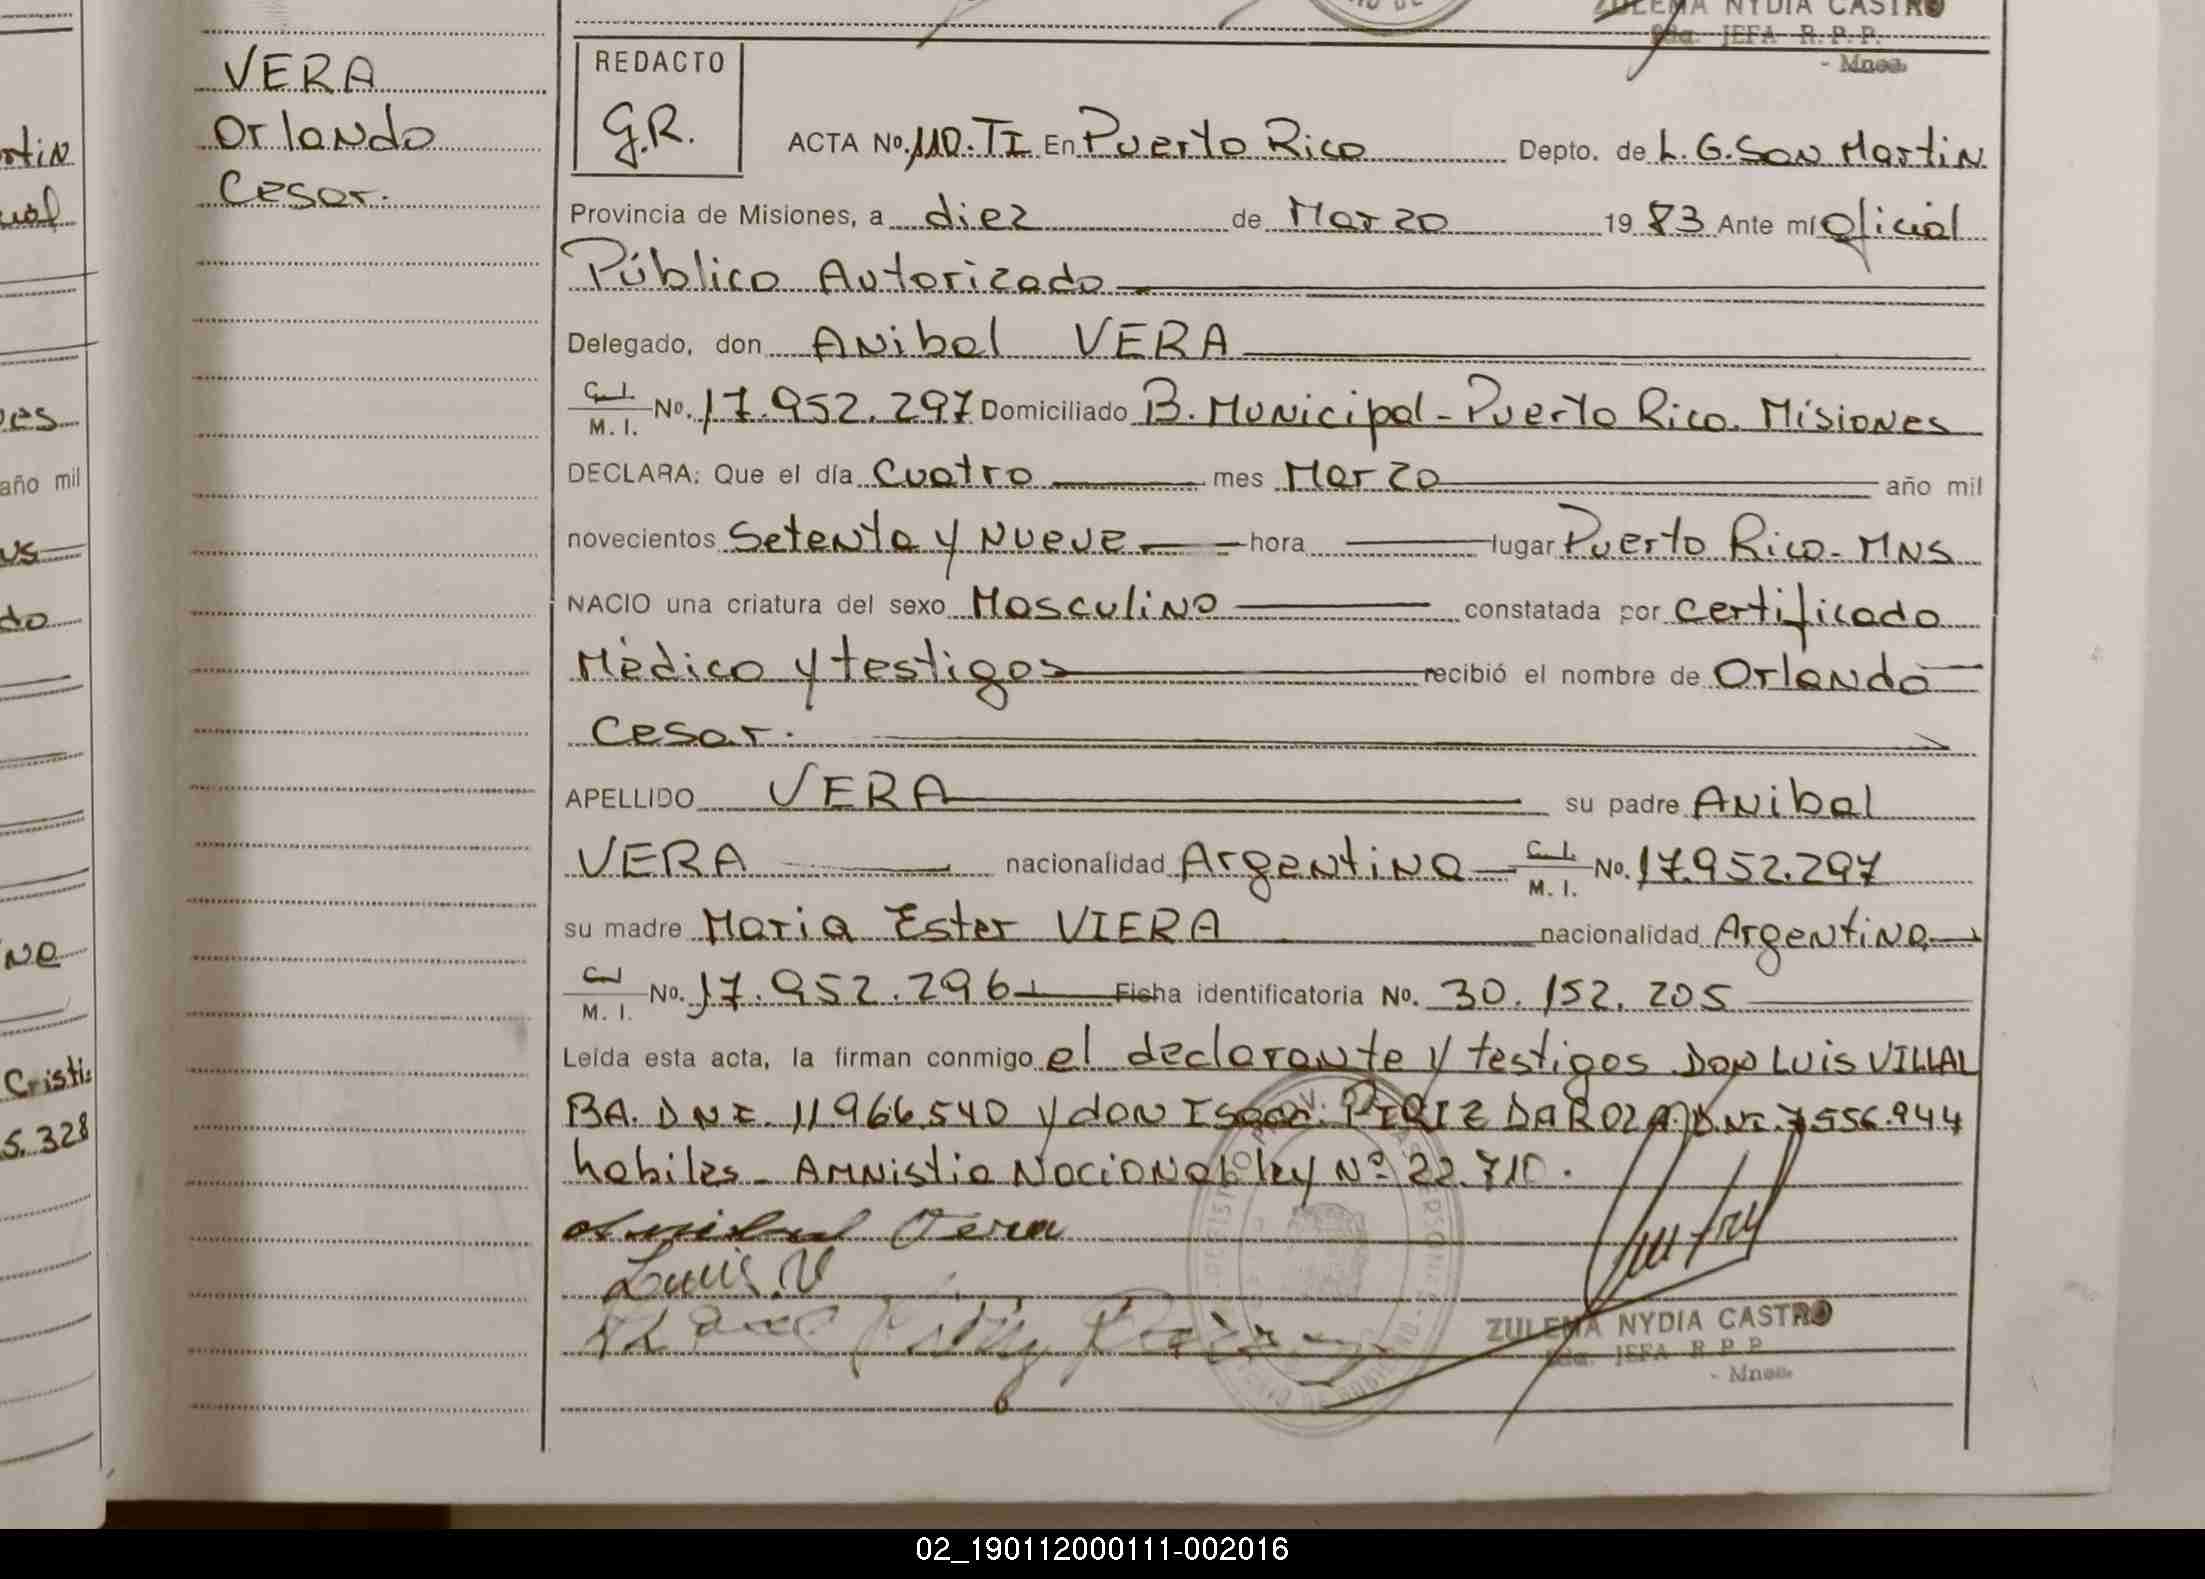 ZULEMA NYDIA CASTRO
2da. JEFA R.P.P.
- Mnes.
VERA
Orlando
Cesar.
REDACTO
G.R.
ACTA No. 110. TI En Puerto Rico Depto. de L. G. San Martin
Provincia de Misiones, a diez de Marzo 1983 Ante mí Oficial
Público Autorizado
Delegado, don Anibal VERA
C. I. / M. I. No. 17.952.297 Domiciliado B. Municipal - Puerto Rico. Misiones
DECLARA: Que el día Cuatro mes Marzo año mil
novecientos Setenta y Nueve hora lugar Puerto Rico - MNS
NACIO una criatura del sexo Masculino constatada por Certificado
Mèdico y testigos recibió el nombre de Orlando
Cesar.
APELLIDO VERA su padre Anibal
VERA nacionalidad Argentina C. I. / M. I. No. 17.952.297
su madre Maria Ester VIERA nacionalidad Argentina
C. I. / M. I. No. 17.952.296 Ficha identificatoria No. 30.152.205
Leída esta acta, la firman conmigo el declarante y testigos Don Luis VILLAL
BA. D N I. 11.966.540 y don Isaac PIRIZ DAROZA D.NI. 7.556.944
habiles - Amnistia Nacional ley Nº 22.710.
Anibal Vera
Luis. V
ZULEMA NYDIA CASTRO
2da. JEFA R.P.P.
- Mnes.
rtin
ual
es
año mil
us
do
na
Cristi
5.328
02_190112000111-002016